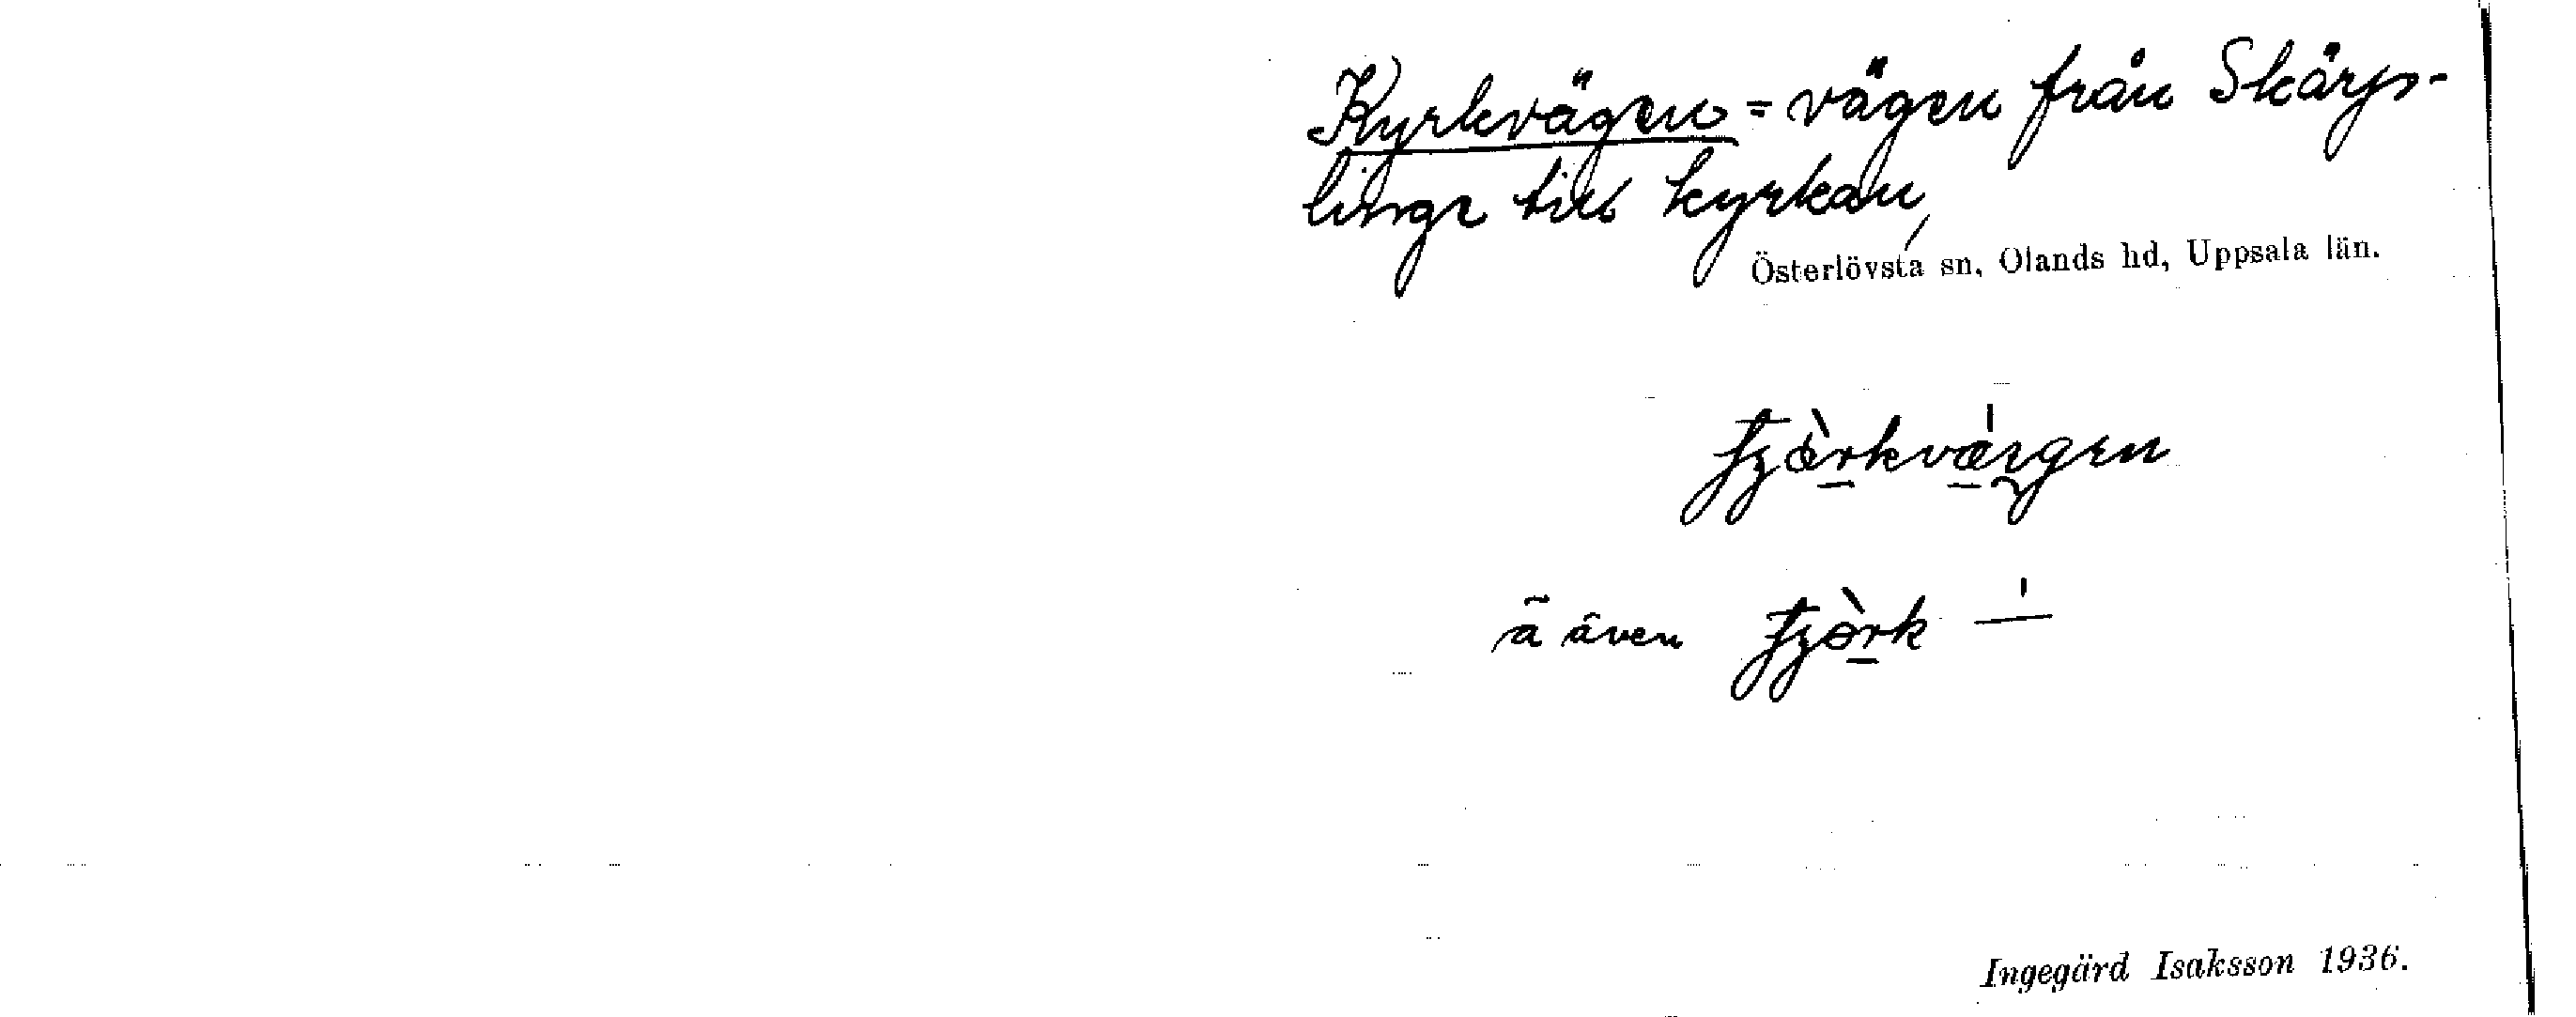 Kyrkvägen = vägen från Skärps-
linge till kyrkan,
Österlövsta sn, Olands hd, Uppsala län.
även
Ingegärd Isaksson 1936.